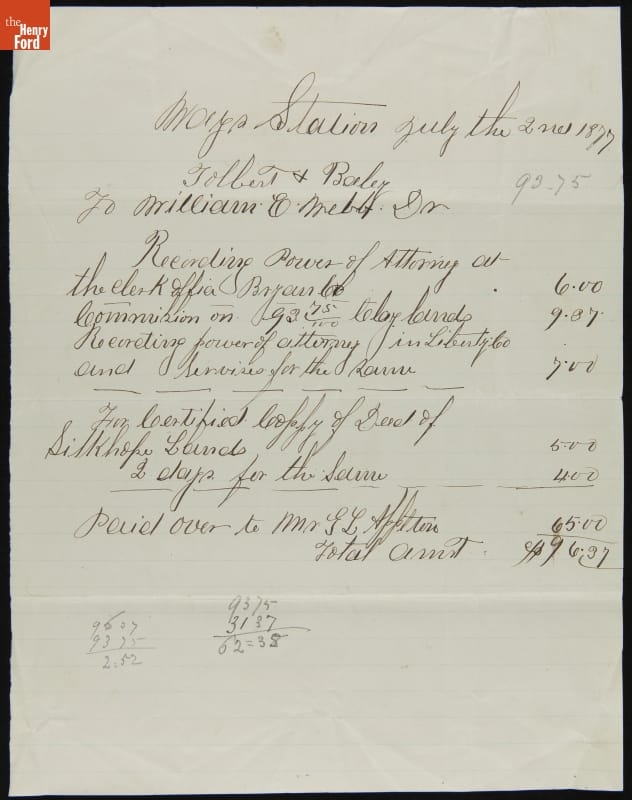 the
Henry
Ford
Ways Station July the 2nd 1877
Tolbert & Baley
93-75
To William E. Webb. Dr
Recording Power of Attorney at
the clerk office Bryan Co 6.00
Commision on 93 75/100 Clay lands 9.37
Recording power of attorney in Liberty Co
and Servises for the Same 7.00
For Certified Coppy of Deed of
Silkhope Lands 5.00
2 days for the Same 4.00
Paid over to Mr G L Appleton 65.00
Total amt. $96.37
9637
9375
2=52
9375
3137
62=38